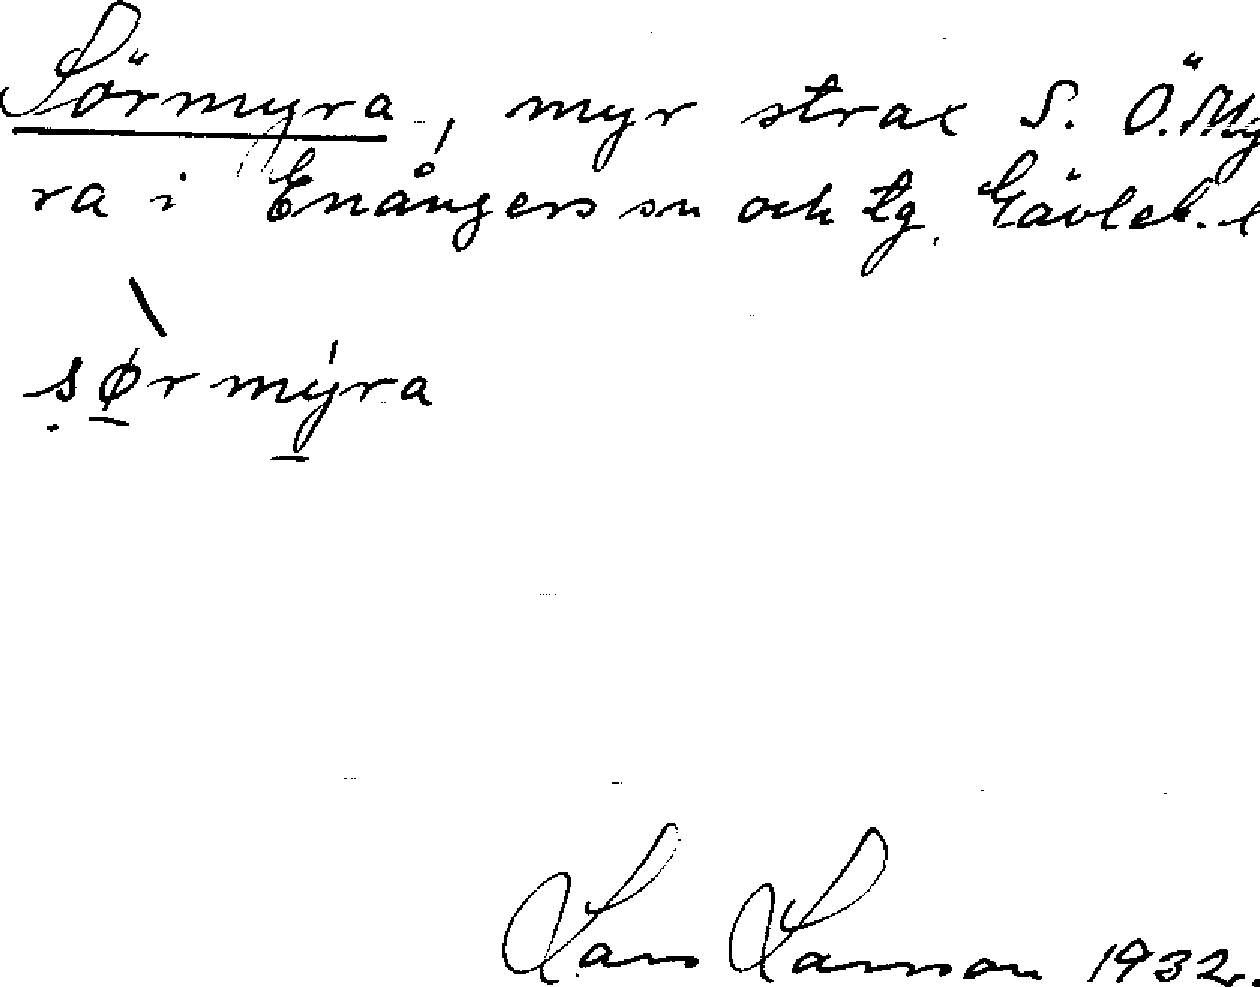 Sörmyra, myr strax S. Ö. "My
ra i Enångers sn och tg. Gävleb. l
sørmýra
Lars Larsson 1932.